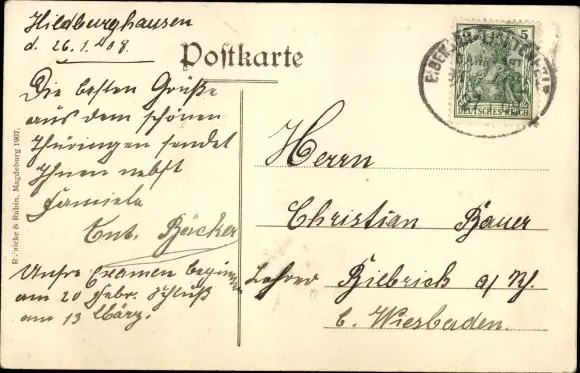 Hildburghausen
d. 26.1.08.
Postkarte
Die besten Grüße
aus dem schönen
Thüringen sendet
Ihnen nebst
Famiele
Ant. Bäcker
Unsre Examen beginnen
am 20 Febr. Schluß
am 13 März.
Herrn
Christian Bauer
Lehrer Biebrich a/Rh.
b. Wiesbaden.
5
DEUTSCHES REICH
& Rubin, Magdeburg 1907.